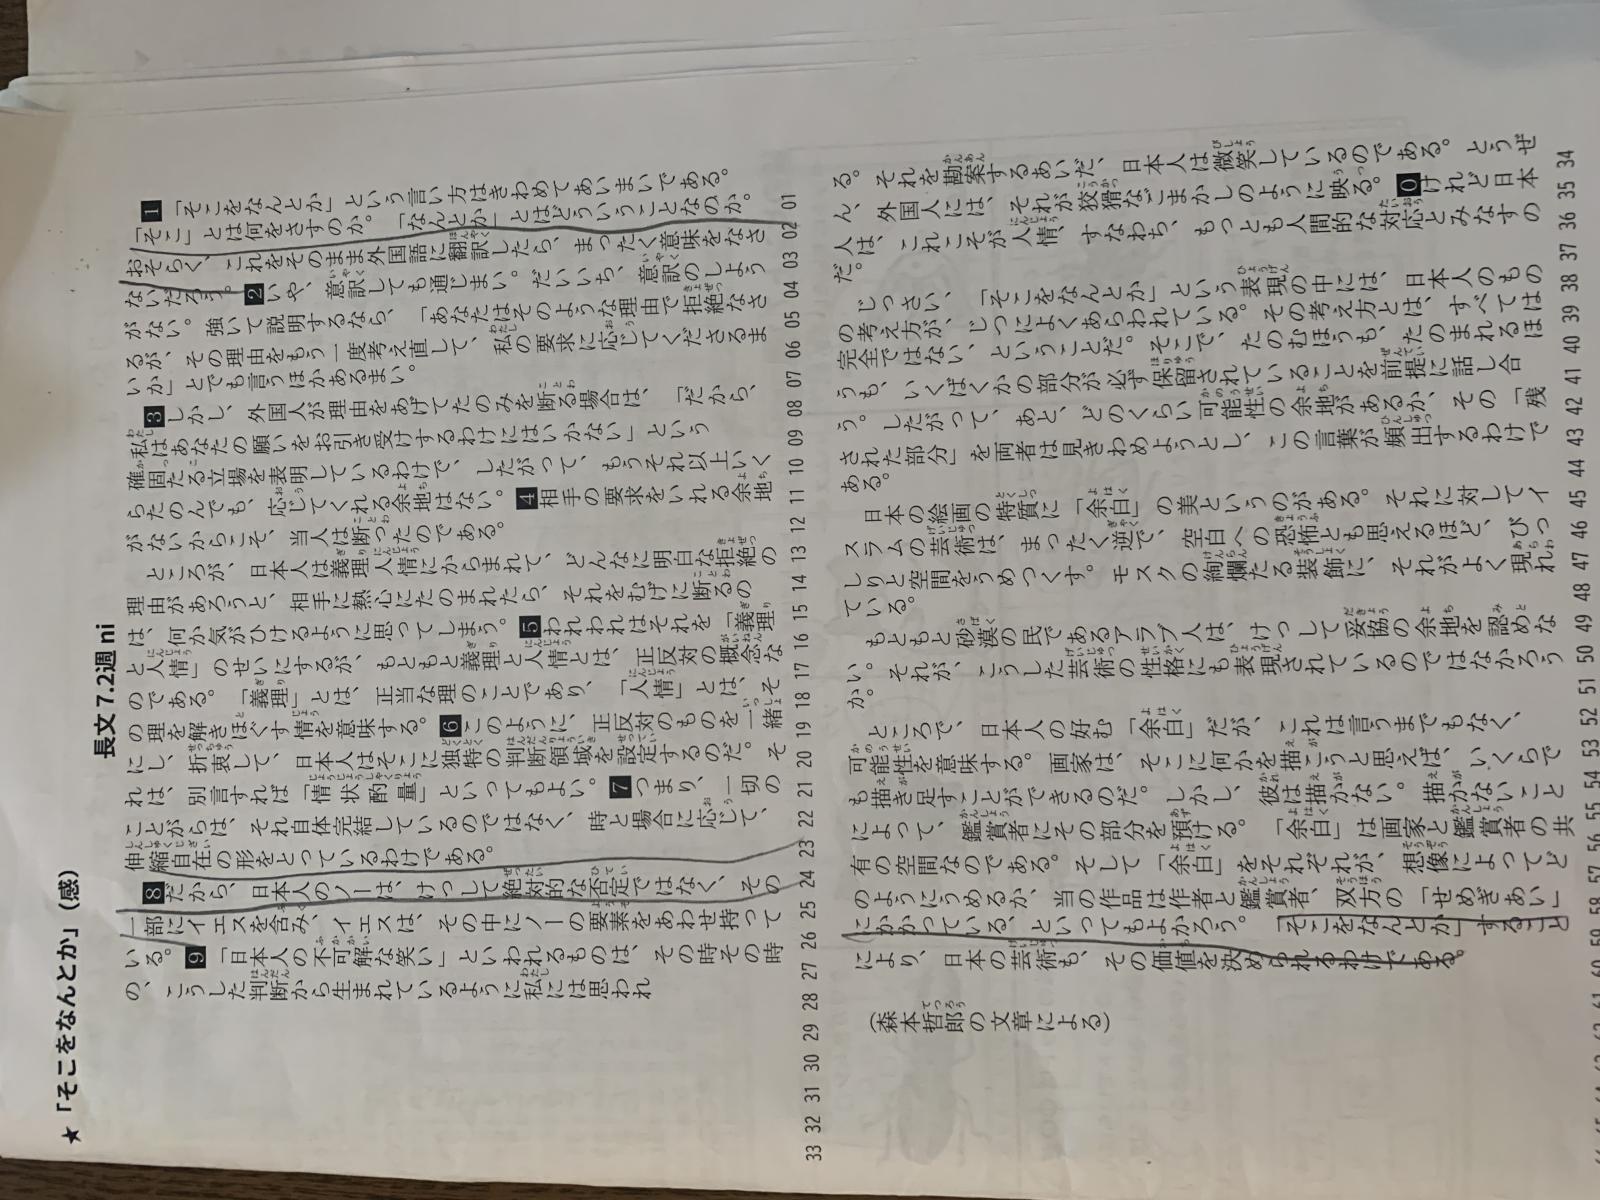 ★「そこをなんとか」(感)
長文 7.2週 ni
1「そこをなんとか」という言い方はきわめてあいまいである。
「そこ」とは何をさすのか。「なんとか」とはどういうことなのか。
おそらく、これをそのまま外国語に翻訳したら、まったく意味をなさ
ないだろう。2いや、意訳しても通じまい。だいいち、意訳のしよう
がない。強いて説明するなら、「あなたはそのような理由で拒絶なさ
るが、その理由をもう一度考え直して、私の要求に応じてくださるま
いか」とでも言うほかあるまい。
3しかし、外国人が理由をあげてたのみを断る場合は、「だから、
私はあなたの願いをお引き受けするわけにはいかない」という
確固たる立場を表明しているわけで、したがって、もうそれ以上いく
らたのんでも、応じてくれる余地はない。4相手の要求をいれる余地
がないからこそ、当人は断ったのである。
ところが、日本人は義理人情にからまれて、どんなに明白な拒絶の
理由があろうと、相手に熱心にたのまれたら、それをむげに断るの
は、何か気がひけるように思ってしまう。5われわれはそれを「義理
と人情」のせいにするが、もともと義理と人情とは、正反対の概念な
のである。「義理」とは、正当な理のことであり、「人情」とは、そ
の理を解きほぐす情を意味する。6このように、正反対のものを一緒
にし、折衷して、日本人はそこに独特の判断領域を設定するのだ。そ
れは、別言すれば「情状酌量」といってもよい。7つまり、一切の
ことがらは、それ自体完結しているのではなく、時と場合に応じて、
伸縮自在の形をとっているわけである。
8だから、日本人のノーは、けっして絶対的な否定ではなく、その
一部にイエスを含み、イエスは、その中にノーの要素をあわせ持って
いる。9「日本人の不可解な笑い」といわれるものは、その時その時
の、こうした判断から生まれているように私には思われ
る。それを勘案するあいだ、日本人は微笑しているのである。とうぜ
ん、外国人には、それが狡猾なごまかしのように映る。0けれど日本
人は、これこそが人情、すなわち、もっとも人間的な対応とみなすの
だ。
じっさい、「そこをなんとか」という表現の中には、日本人のもの
の考え方が、じつによくあらわれている。その考え方とは、すべては
完全ではない、ということだ。そこで、たのむほうも、たのまれるほ
うも、いくばくかの部分が必ず保留されていることを前提に話し合
う。したがって、あと、どのくらい可能性の余地があるか、その「残
された部分」を両者は見きわめようとし、この言葉が頻出するわけで
ある。
日本の絵画の特質に「余白」の美というのがある。それに対してイ
スラムの芸術は、まったく逆で、空白への恐怖とも思えるほど、びっ
しりと空間をうめつくす。モスクの絢爛たる装飾に、それがよく現れ
ている。
もともと砂漠の民であるアラブ人は、けっして妥協の余地を認めな
い。それが、こうした芸術の性格にも表現されているのではなかろう
か。
ところで、日本人の好む「余白」だが、これは言うまでもなく、
可能性を意味する。画家は、そこに何かを描こうと思えば、いくらで
も描き足すことができるのだ。しかし、彼は描かない。描かないこと
によって、鑑賞者にその部分を預ける。「余白」は画家と鑑賞者の共
有の空間なのである。そして「余白」をそれぞれが、想像によってど
のようにうめるか、当の作品は作者と鑑賞者、双方の「せめぎあい」
にかかっている、といってもよかろう。「そこをなんとか」すること
により、日本の芸術も、その価値を決められるわけである。
(森本哲郎の文章による)
01 02 03 04 05 06 07 08 09 10 11 12 13 14 15 16 17 18 19 20 21 22 23 24 25 26 27 28 29 30 31 32 33
34 35 36 37 38 39 40 41 42 43 44 45 46 47 48 49 50 51 52 53 54 55 56 57 58 59 60 61